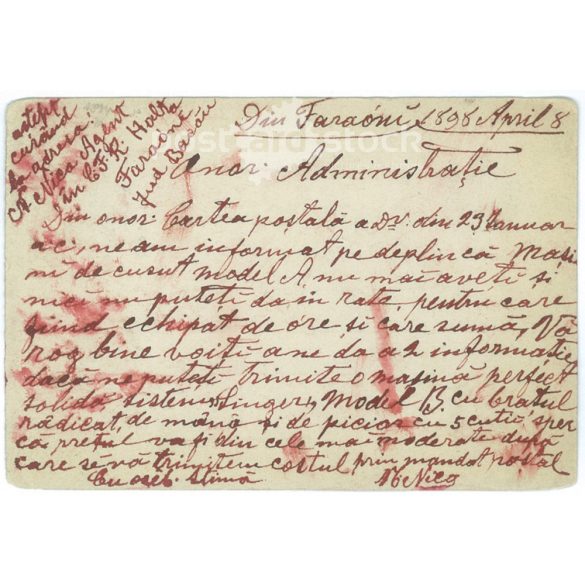 aștept
curând
la adresa:
A. Nica Agent
în C.F.R. Halta
Faraoni
Jud Bacău
Din Faraóni 1898 April 8
Onor. Administrație
Din onor Cartea postală a Dv. din 23 Ianuar
a.c. ne am informat pe deplin că Mași
ni de cusut model A. nu mai aveti si
nici nu puteti da in rate, pentru care
fiind echipat de ore si care sumă, Vă
rog bine voiți a ne da a 2 informatie
dacă ne puteti trimite o masină perfect
solidă sistem „Singer„ Model B. cu bratul
rădicat, de mâna și de picior cu 5 cutii, sper
că prețul va fi din cele mai moderate după
care să vă trimitem costul prin mandat postal
Cu oseb. stimă
A. Nica